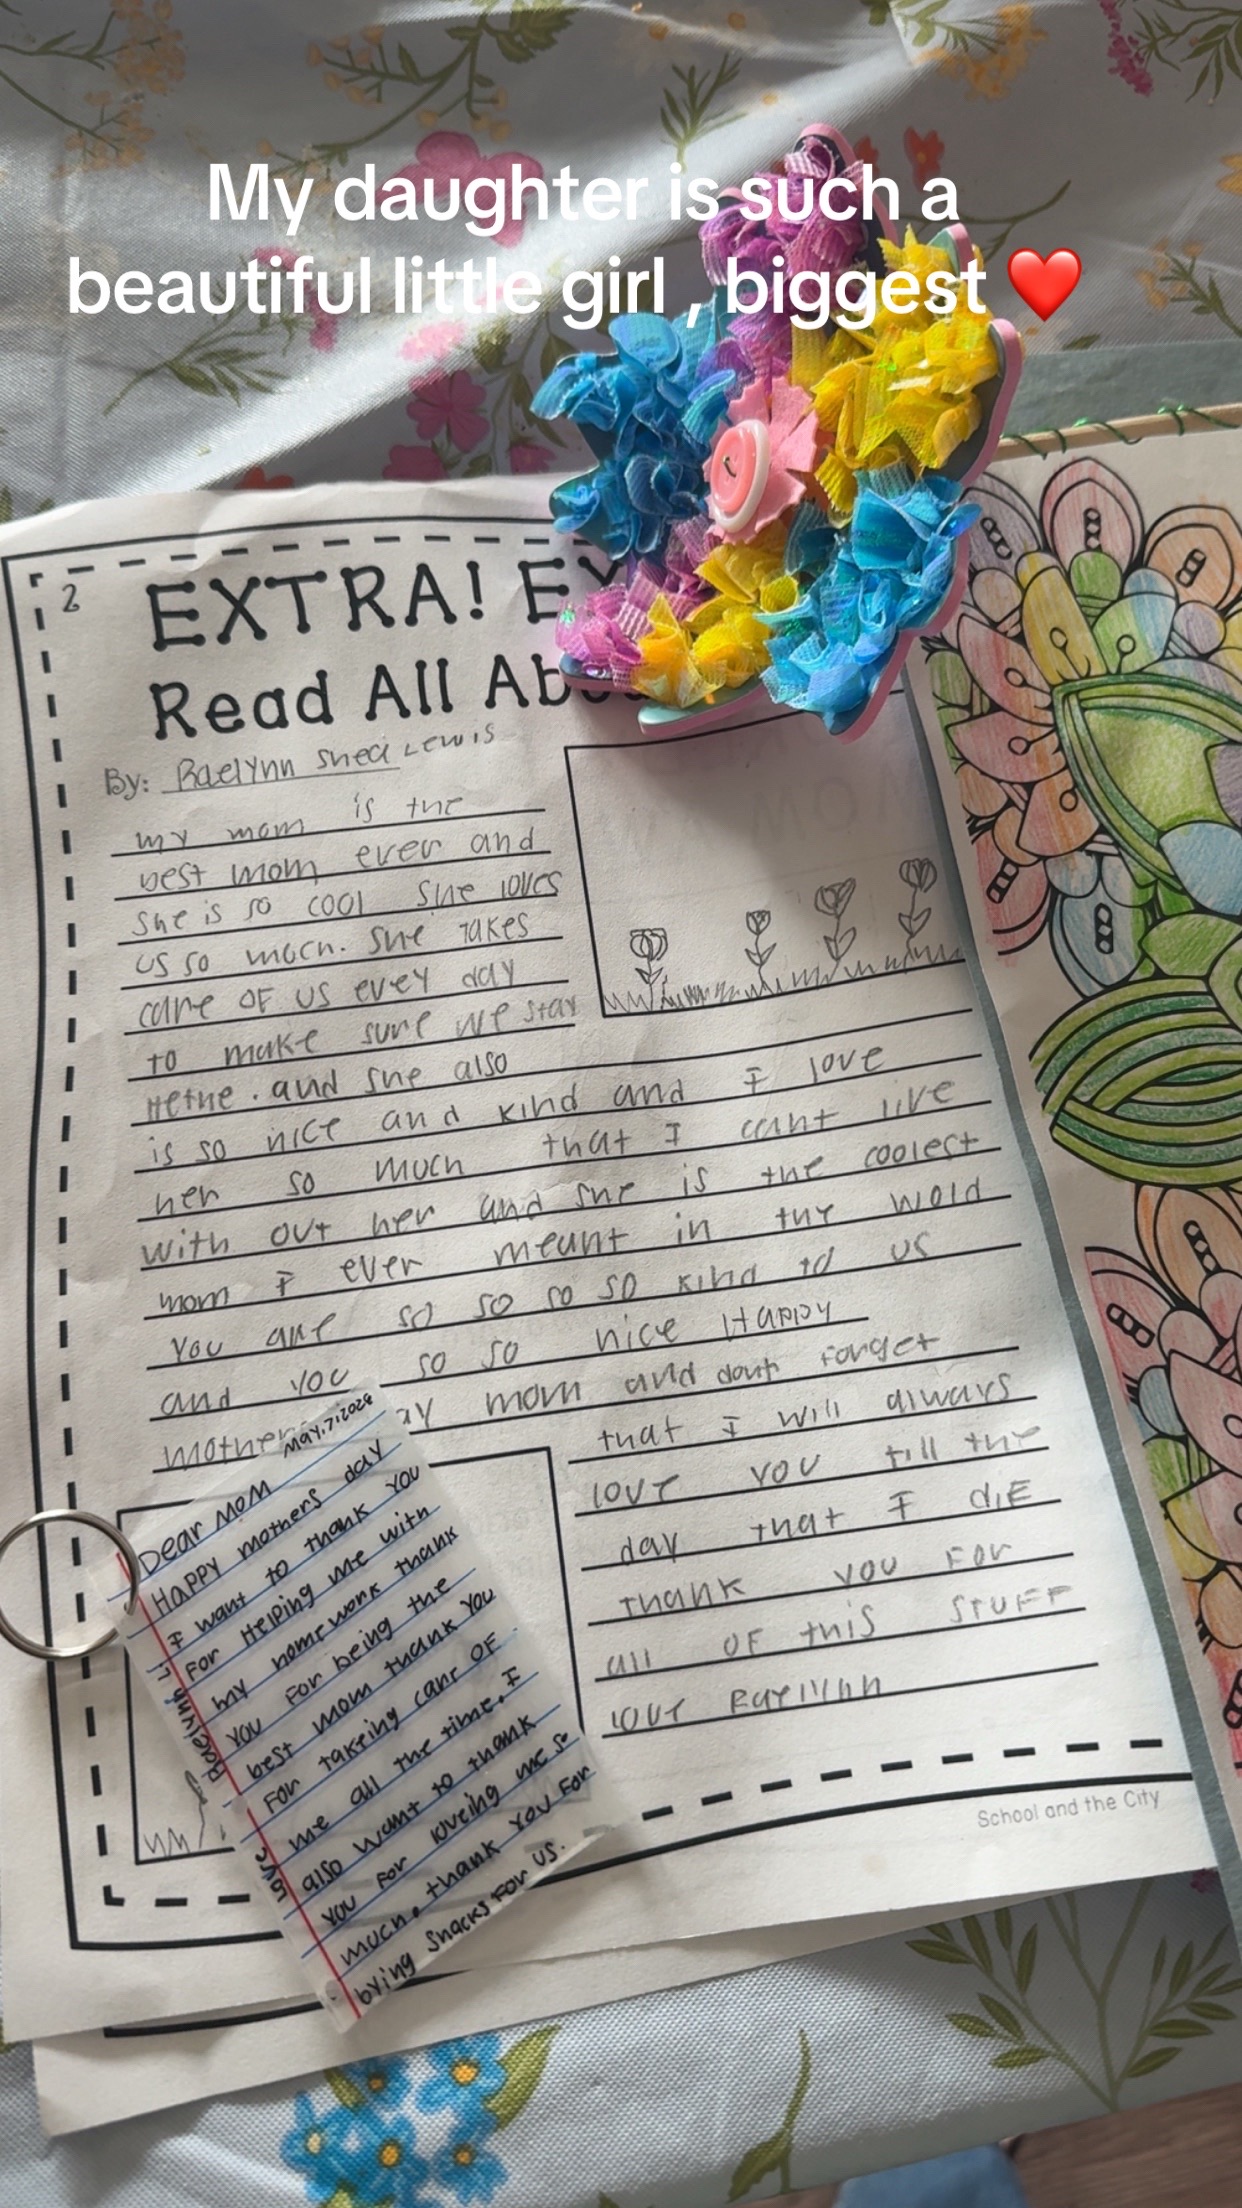 My daughter is such a
beautiful little girl , biggest ❤️
2
EXTRA!
Read All
By: Raelynn Shea Lewis
my mom is the
best mom ever and
she is so cool she loves
us so much. she takes
care OF us evey day
to make sure we stay
Hethe. and she also
is so nice and kind and I love
her so much that I cant live
with out her and she is the coolest
mom I ever meant in the wold
you are so so so so kind to us
and you so so nice Happy
mother ay mom and dont forget
that I will always
love you till the
day that I diE
Thank you For
all OF this STUFF
love Raelynn
School and the City
May,7,2026
Dear Mom
Happy mothers day
I want to thank you
For Helping me with
my homework thank
you For being the
best mom thank you
For takeing care OF
me all the time, I
also want to thank
you For loveing me so
much, thank you For
bying Snacks For us.
love Raelynn L